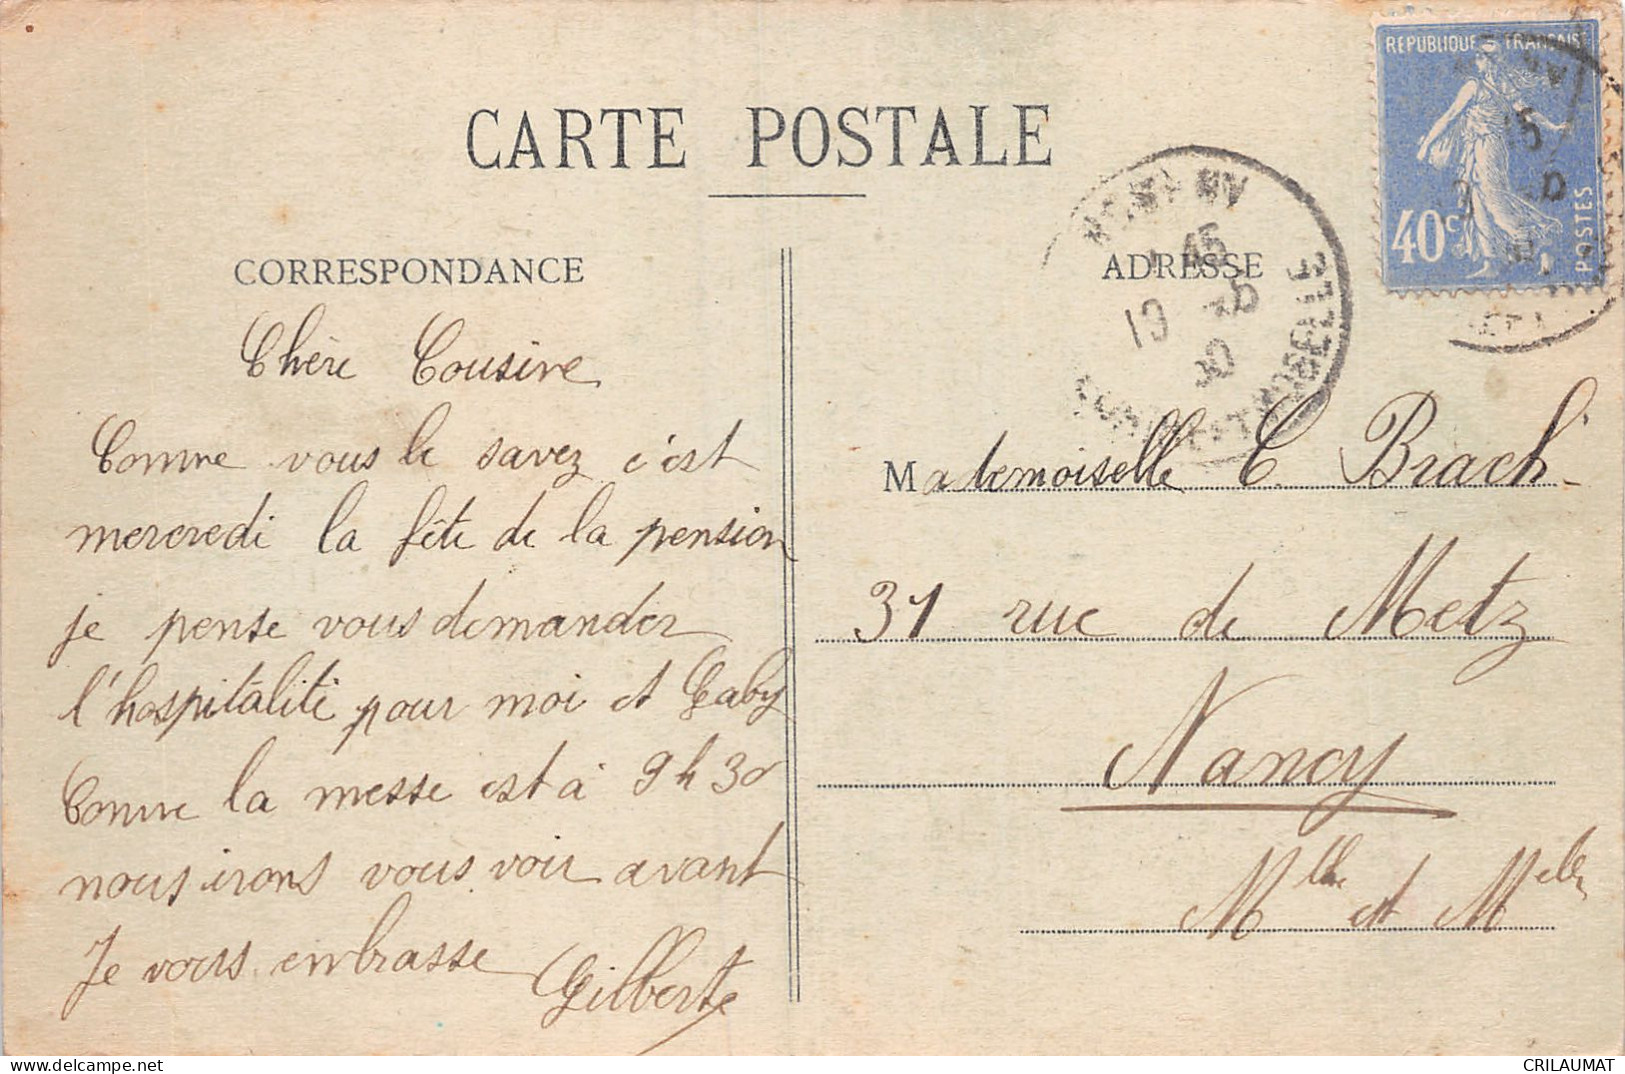 CARTE POSTALE
CORRESPONDANCE
Chère Cousine
Comme vous le savez c'est
mercredi la fête de la pension
je pense vous demander
l'hospitalité pour moi et Gaby
Comme la messe est à 9 h 30
nous irons vous voir avant
Je vous embrasse
Gilberte
ADRESSE
REPUBLIQUE FRANÇAISE
40c
POSTES
45
19
30
MOSELLE
Mademoiselle C. Brach
31 rue de Metz
Nancy
Mthe et Melle
www.delcampe.net
CRILAUMAT